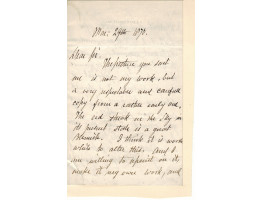 Nov: 29th 1870.
Dear Sir,
The picture you sent
me is not my work, but
a very reputable and careful
copy from a rather early one.
The red streak in the sky in
its present state is a great
blemish. I think it is worth
while to alter this. And I
am willing to repaint on it,
make to my own work, and